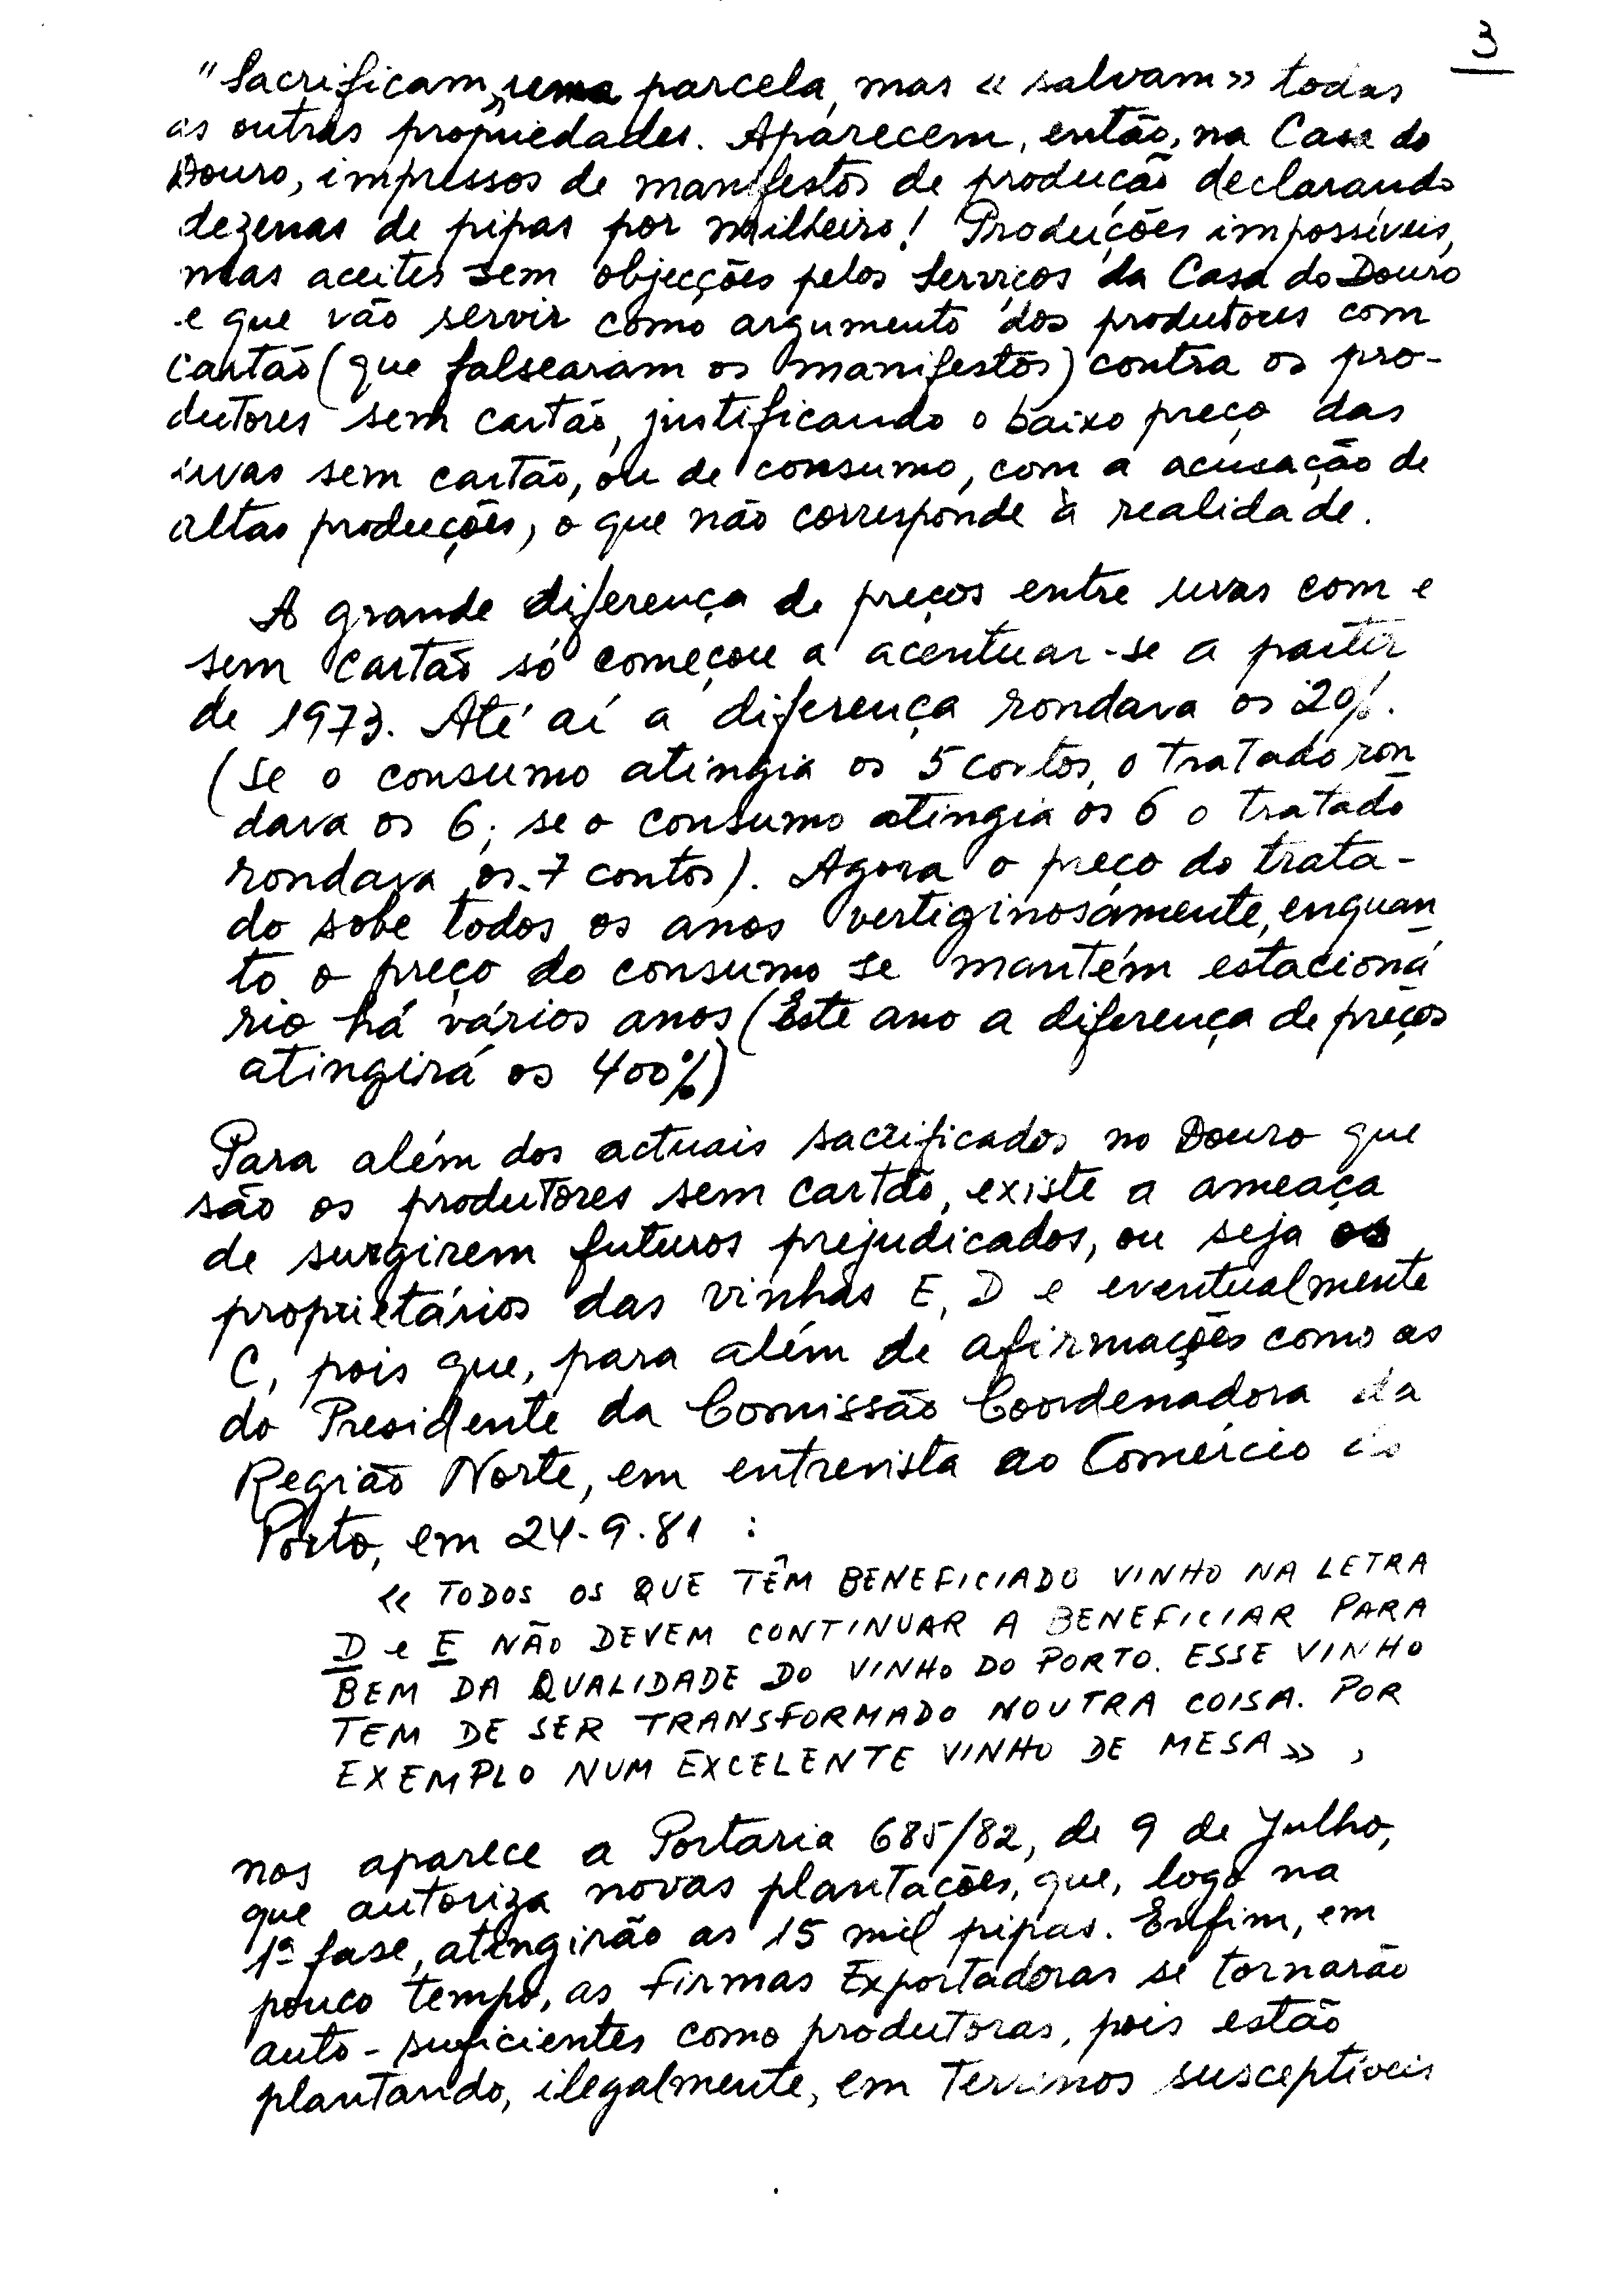 3
"Sacrificam" uma parcela, mas « salvam » todas
as outras propriedades. Aparecem, então, na Casa do
Douro, impressos de manifestos de produção declarando
dezenas de pipas por milheiro! Produções impossíveis,
mas aceites sem objecções pelos Serviços da Casa do Douro
e que vão servir como argumento dos produtores com
cartão (que falsearam os manifestos) contra os pro-
dutores sem cartão, justificando o baixo preço das
uvas sem cartão, ou de consumo, com a acusação de
altas produções, o que não corresponde à realidade.
A grande diferença de preços entre uvas com e
sem cartão só começou a acentuar-se a partir
de 1973. Até aí a diferença rondava os 20%.
(Se o consumo atingia os 5 contos, o tratado ron
dava os 6; se o consumo atingia os 6 o tratado
rondava os 7 contos). Agora o preço do trata-
do sobe todos os anos vertiginosamente, enquan
to o preço do consumo se mantém estacioná
rio há vários anos (Este ano a diferença de preços
atingirá os 400%)
Para além dos actuais sacrificados no Douro que
são os produtores sem cartão, existe a ameaça
de surgirem futuros prejudicados, ou seja os
proprietários das vinhas E, D e eventualmente
C, pois que, para além de afirmações como as
do Presidente da Comissão Coordenadora da
Região Norte, em entrevista ao Comércio do
Porto, em 24-9-81 :
« TODOS OS QUE TÊM BENEFICIADO VINHO NA LETRA
D e E NÃO DEVEM CONTINUAR A BENEFICIAR PARA
BEM DA QUALIDADE DO VINHO DO PORTO. ESSE VINHO
TEM DE SER TRANSFORMADO NOUTRA COISA. POR
EXEMPLO NUM EXCELENTE VINHO DE MESA » ,
nos aparece a Portaria 685/82, de 9 de Julho,
que autoriza novas plantações, que, logo na
1ª fase, atingirão as 15 mil pipas. Enfim, em
pouco tempo, as Firmas Exportadoras se tornarão
auto-suficientes como produtoras, pois estão
plantando, ilegalmente, em Terrenos susceptíveis